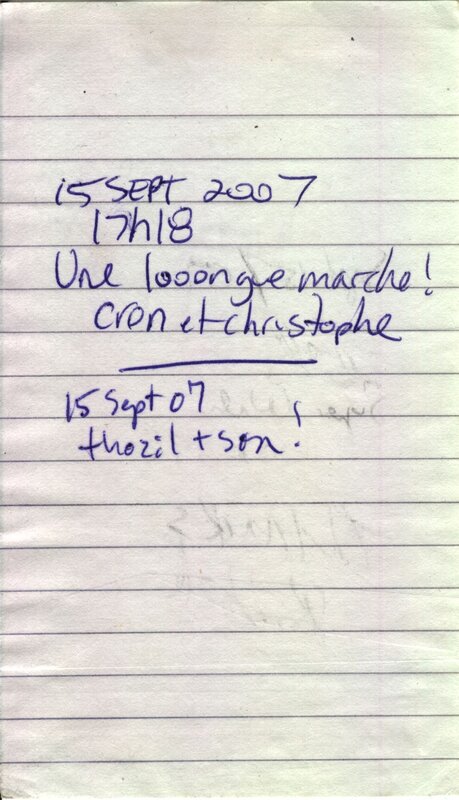 15 SEPT 2007
17h18
Une looongue marche!
cron et christophe
15 Sept 07
thozil + son!